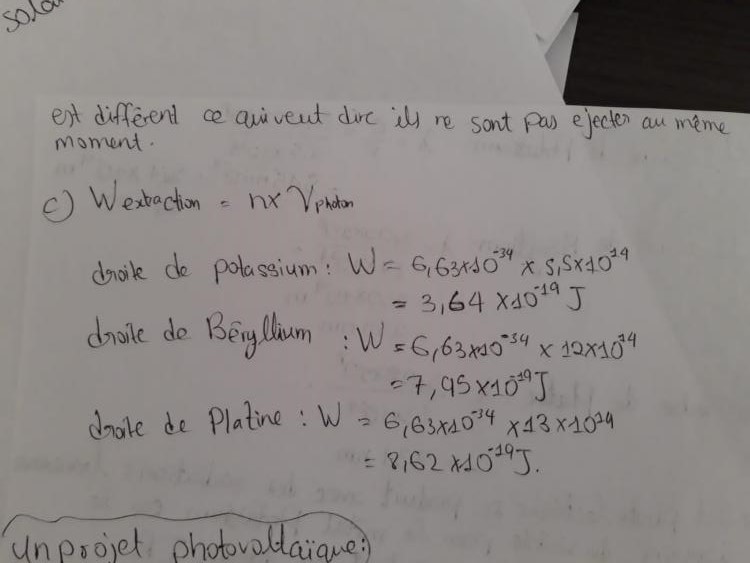 est différent ce qui veut dire ils ne sont pas ejecter au même
moment.
c) W extraction = h x ν photon
droite de potassium : W = 6,63x10^-34 x 5,5x10^14
= 3,64 x10^-19 J
droite de Béryllium : W = 6,63x10^-34 x 12x10^14
= 7,95x10^-19 J
droite de Platine : W = 6,63x10^-34 x 13 x 10^14
= 8,62 x10^-19 J.
Un projet photovoltaïque: